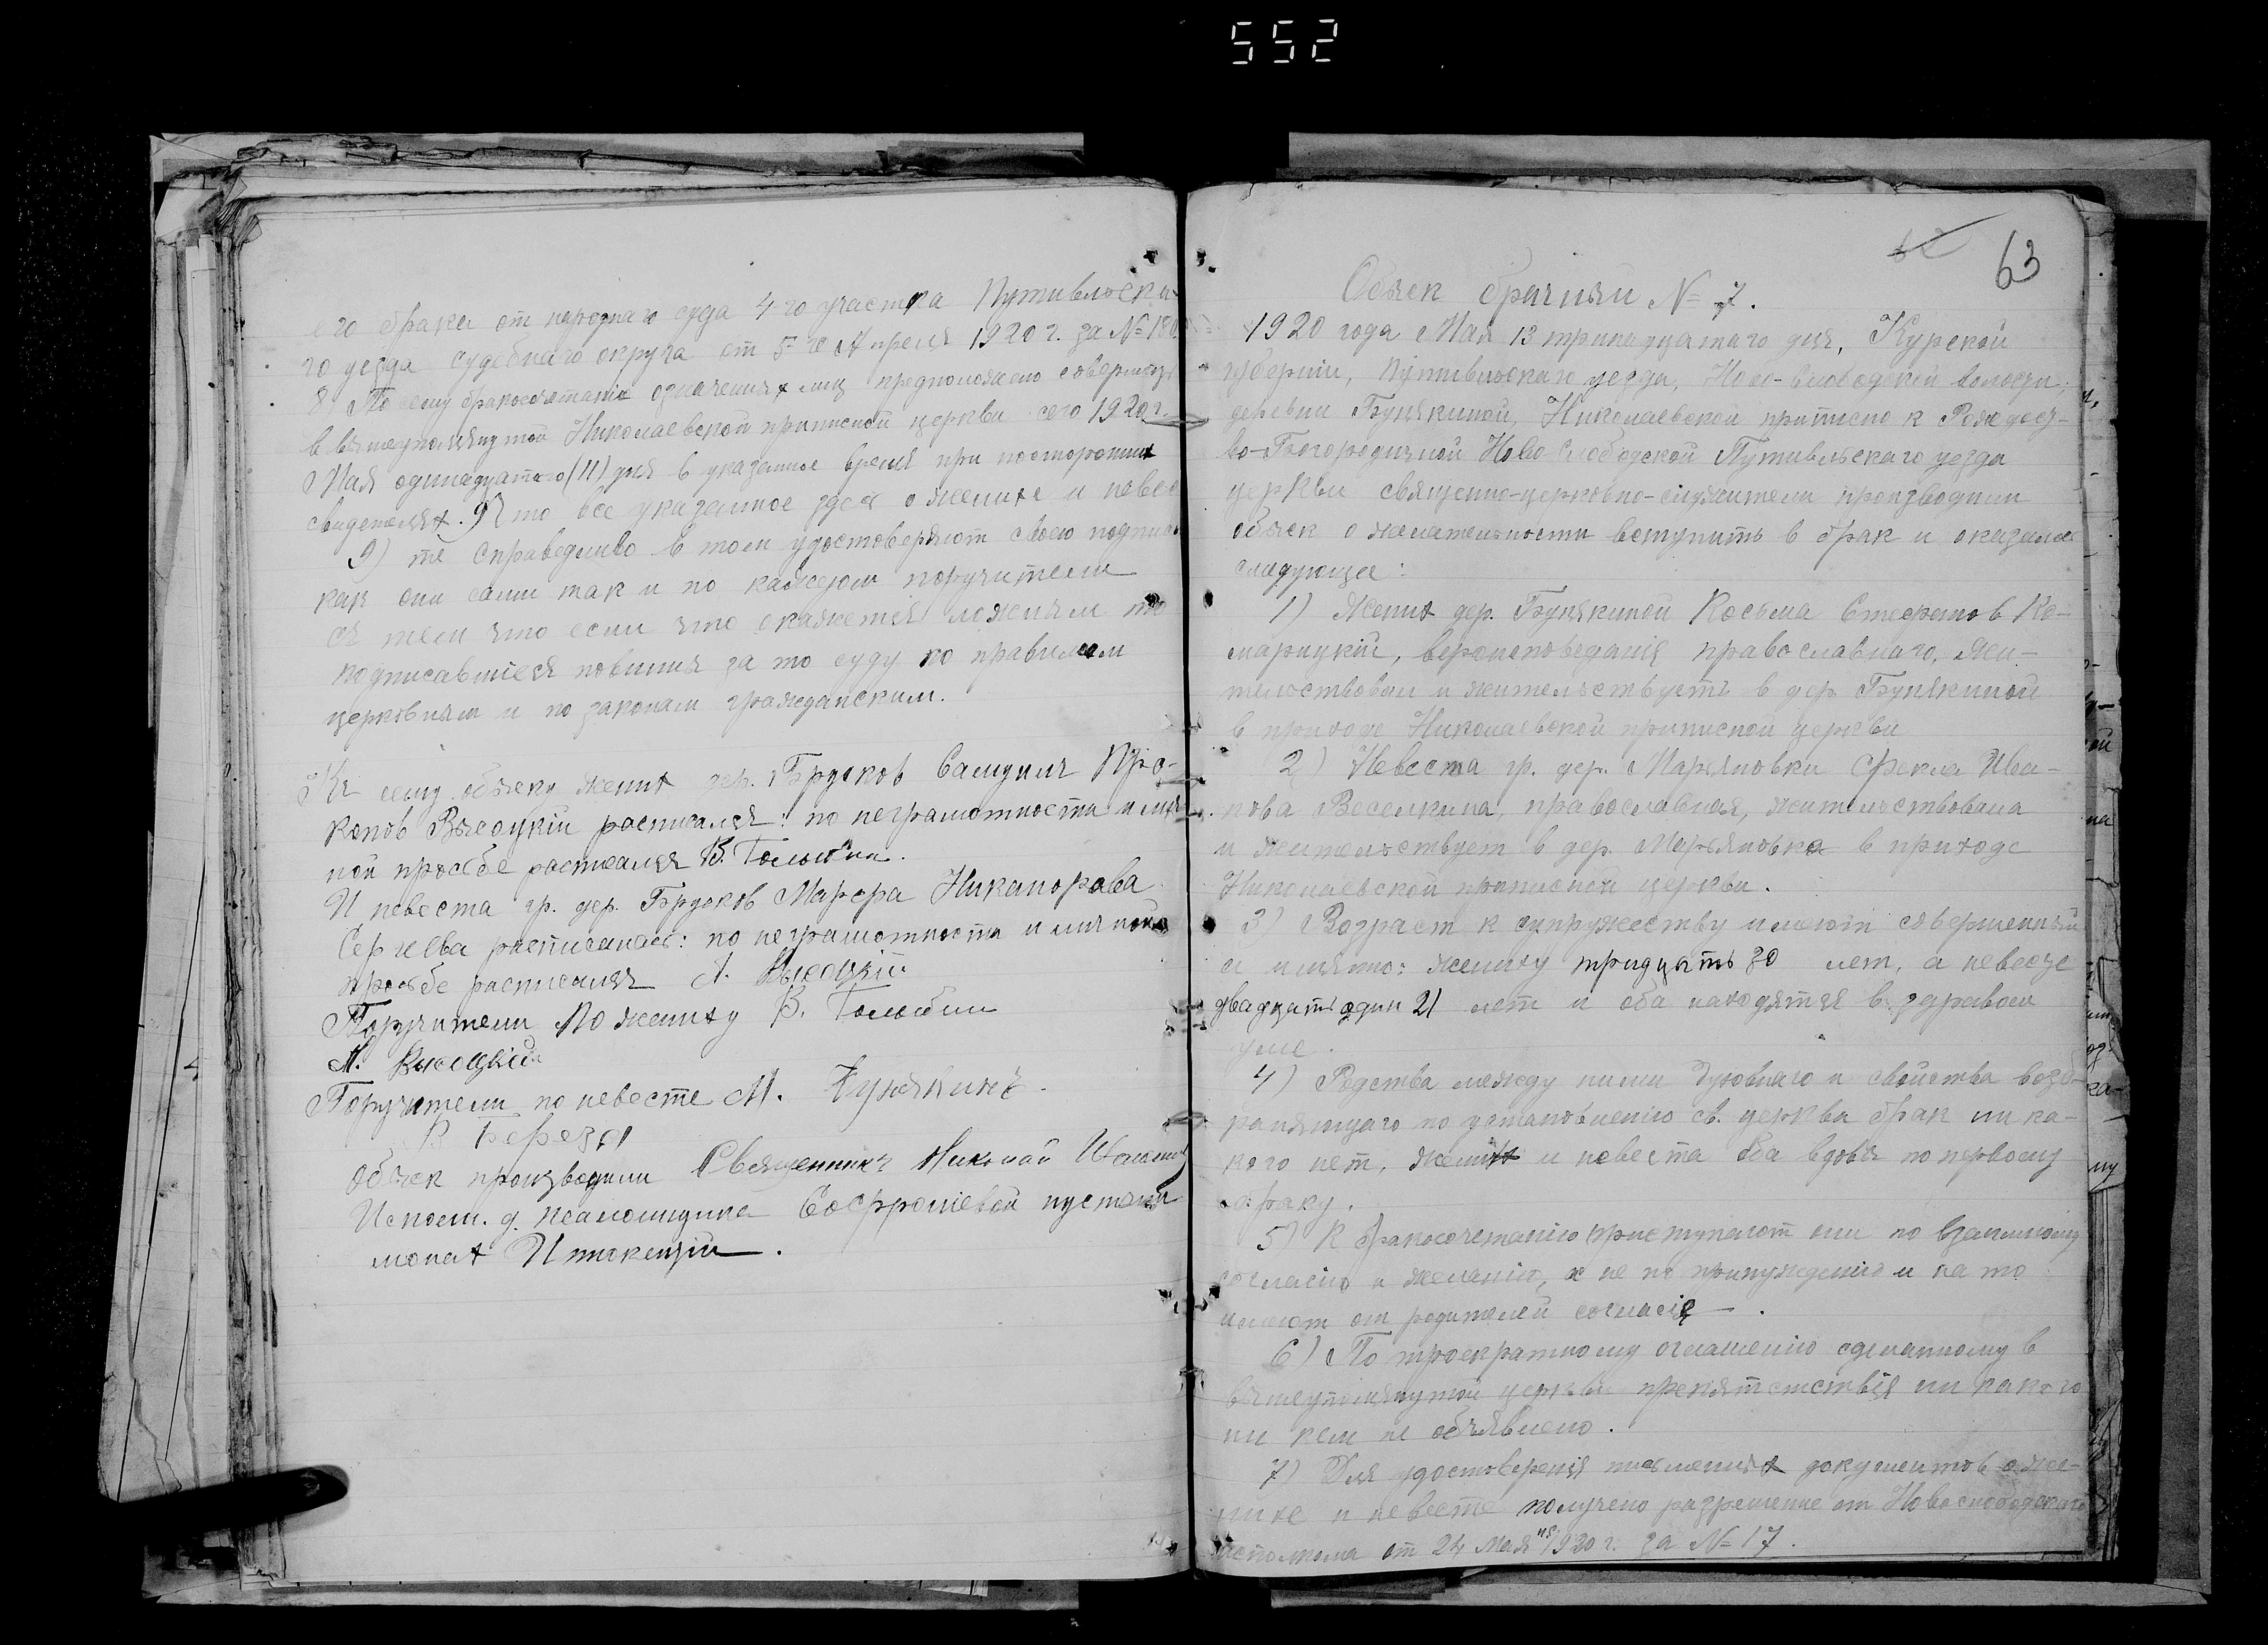 552
его брака от народнаго суда 4-го участка Путивльска-
го уезда судебнаго округа от 5-го Апреля 1920 г. за №
8) По сему бракосочетание означенных лиц предположено совершить
в вышеупомянутой Николаевской приписной церкви сего 1920 г.
Мая одинадцатаго (11) дня в указанное время при посторонних
свидетелях. 9) Что все указанное здесь о женихе и невес
9) те справедливо в том удостоверяют своею подписью
как они сами так и по каждом поручители
съ тем что если что окажется ложным то
подписавшиеся повинны за то суду по правилам
церковным и по законам гражданским.
К сему обыску жених дер. Брусков Самуил Про-
копов Высоцкій расписался: по неграмотности и лич
ной просьбе расписался В. Голыбин.
И невеста гр. дер. Брусков Марфа Никанорова
Сергеева расписалась: по неграмотности и личной
просьбе расписался А. Высоцкій
Поручители По жениху В. Голыбин
А. Высоцкій
Поручители по невесте М. Бунякинъ.
В Береза
Обыск производили Священникъ Николай
Испол. д. псаломщика Софроніевой пустыни
монах Инокентій.
62 63
Обыск брачный № 7.
1920 года Мая 13 тринадцатаго дня, Курской
губернии, Путивльскаго уезда, Ново-Слободской волости,
деревни Бунякиной, Николаевской приписно к Рождест-
во-Богородичной Ново-Слободской Путивльскаго уезда
церкви священно-церковно-служители производили
обыск о желательности вступить в брак и оказалось
следующее:
1) Жених дер. Бунякиной Косьма Стефанов Ко-
марицкій, вероисповеданія православнаго, жи-
тельствовал и жительствуетъ в дер. Бунякиной
в приходе Николаевской приписной церкви
2) Невеста гр. дер. Марьяновки Фекла Ива-
нова Веселкина, православная, жительствовала
и жительствует в дер. Марьяновка в приходе
Николаевской приписной церкви.
3) Возраст к супружеству имеют совершенный
а именно: жениху тридцать 30 лет, а невесте
двадцать один 21 лет и оба находятся в здравом
уме.
4) Родства между ними духовнаго и свойства возб-
раняющаго по установлению св. церкви брак ни ка-
кого нет, жених и невеста оба вдовы по первому
браку.
5) К бракосочетанію приступают они по взаимному
согласію и желанію, а не по принуждению и на то
имеют от родителей согласіе.
6) По троекратному оглашению сделанному в
вышеупомянутой церкви препятствія ни какого
ни кем не объявлено.
7) Для удостоверенія письменных документов о же-
нихе и невесте получено разрешение от Новослободскаго
исполкома от 24 Мая н.с. 1920 г. за № 17.